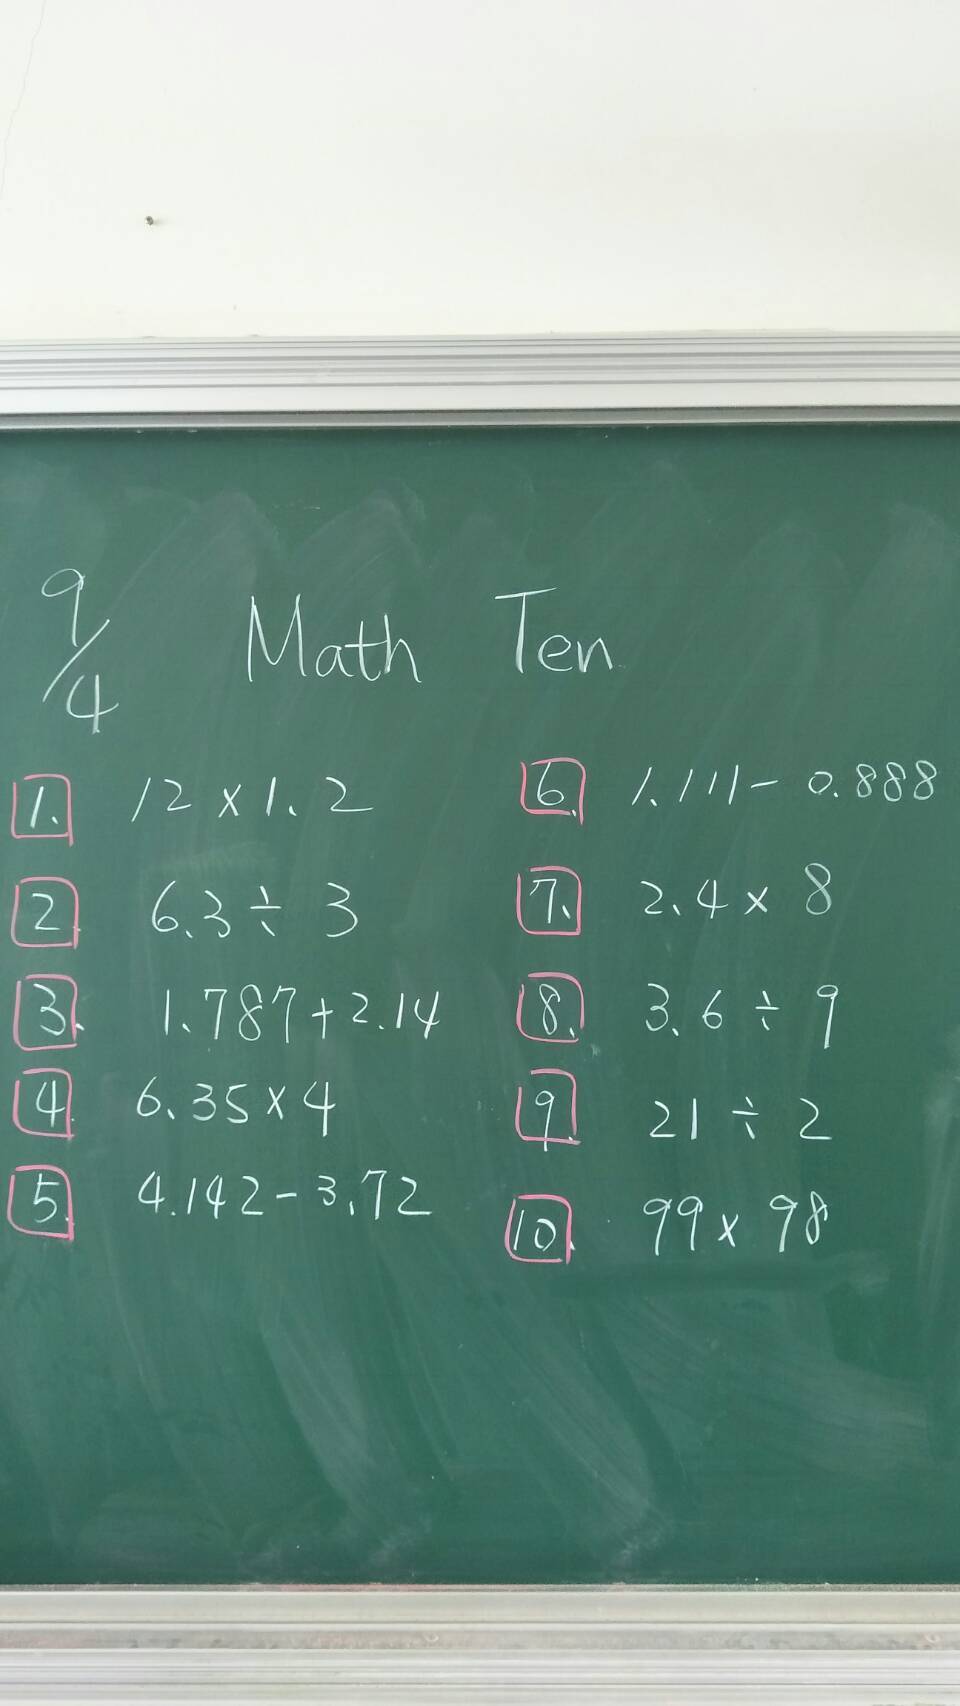 9/4 Math Ten
1. 12 × 1.2
2. 6.3 ÷ 3
3. 1.787 + 2.14
4. 6.35 × 4
5. 4.142 - 3.72
6. 1.111 - 0.888
7. 2.4 × 8
8. 3.6 ÷ 9
9. 21 ÷ 2
10. 99 × 98